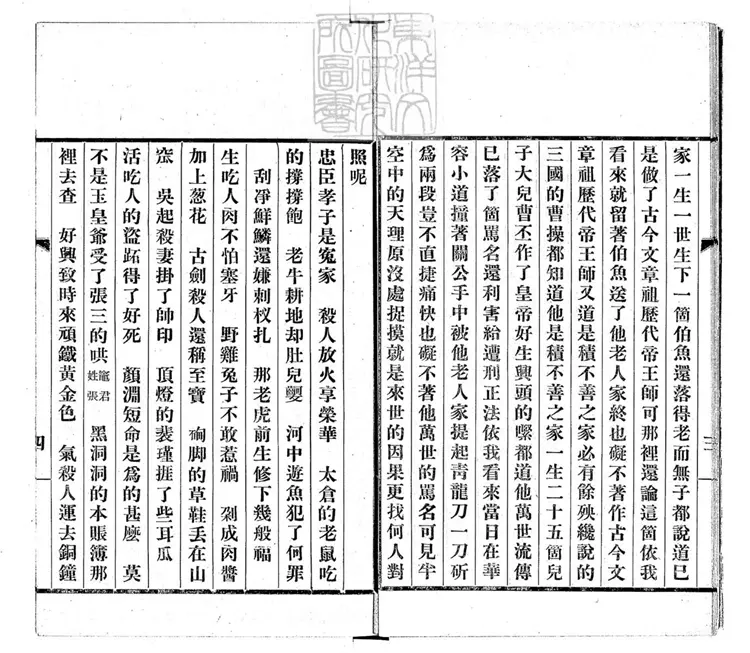 家一生一世生下一箇伯魚還落得老而無子都說道已
是做了古今文章祖歷代帝王師可那裡還論這箇依我
看來就留著伯魚送了他老人家終也礙不著作古今文
章祖歷代帝王師又道是積不善之家必有餘殃纔說的
三國的曹操都知道他是積不善之家一生二十五箇兒
子大兒曹丕作了皇帝好生興頭的緊都道他萬世流傳
已落了箇罵名還利害給遭刑正法依我看來當日在華
容小道撞著關公手中被他老人家提起靑龍刀一刀斫
爲兩段豈不直捷痛快也礙不著他萬世的罵名可見半
空中的天理原沒處捉摸就是來世的因果更找何人對
三
照呢
忠臣孝子是冤家　殺人放火享榮華　太倉的老鼠吃
的撐撐飽　老牛耕地却肚兒　河中遊魚犯了何罪
刮淨鮮鱗還嫌刺杈扎　那老虎前生修下幾般福
生吃人肉不怕塞牙　野雞兔子不敢惹禍　剁成肉醬
加上葱花　古劍殺人還稱至寶　脚的草鞋丢在山
窊　吳起殺妻掛了帥印　頂燈的裴瑾捱了些耳瓜
活吃人的盜跖得了好死　顏淵短命是爲的甚麽　莫
不是玉皇爺受了張三的哄　竈君姓張　黑洞洞的本賬簿那
裡去查　好興致時來頑鐵黃金色　氣殺人運去銅鐘
四